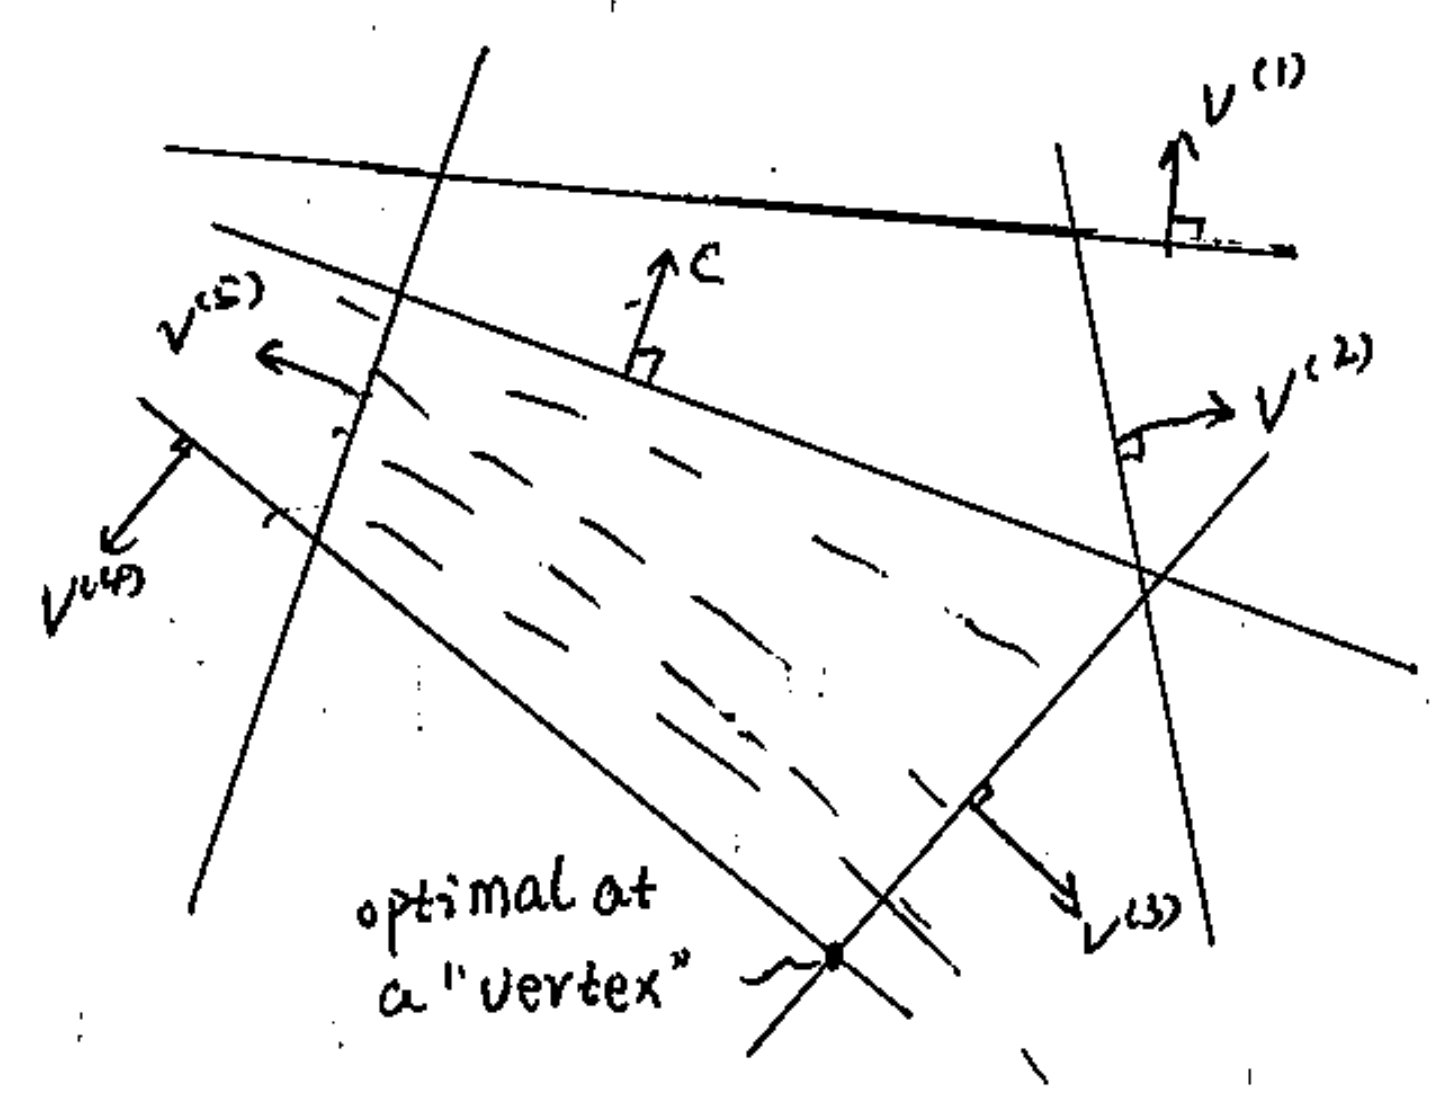 V(1)
C
V(5)
V(2)
V(4)
V(3)
optimal at
a "vertex"